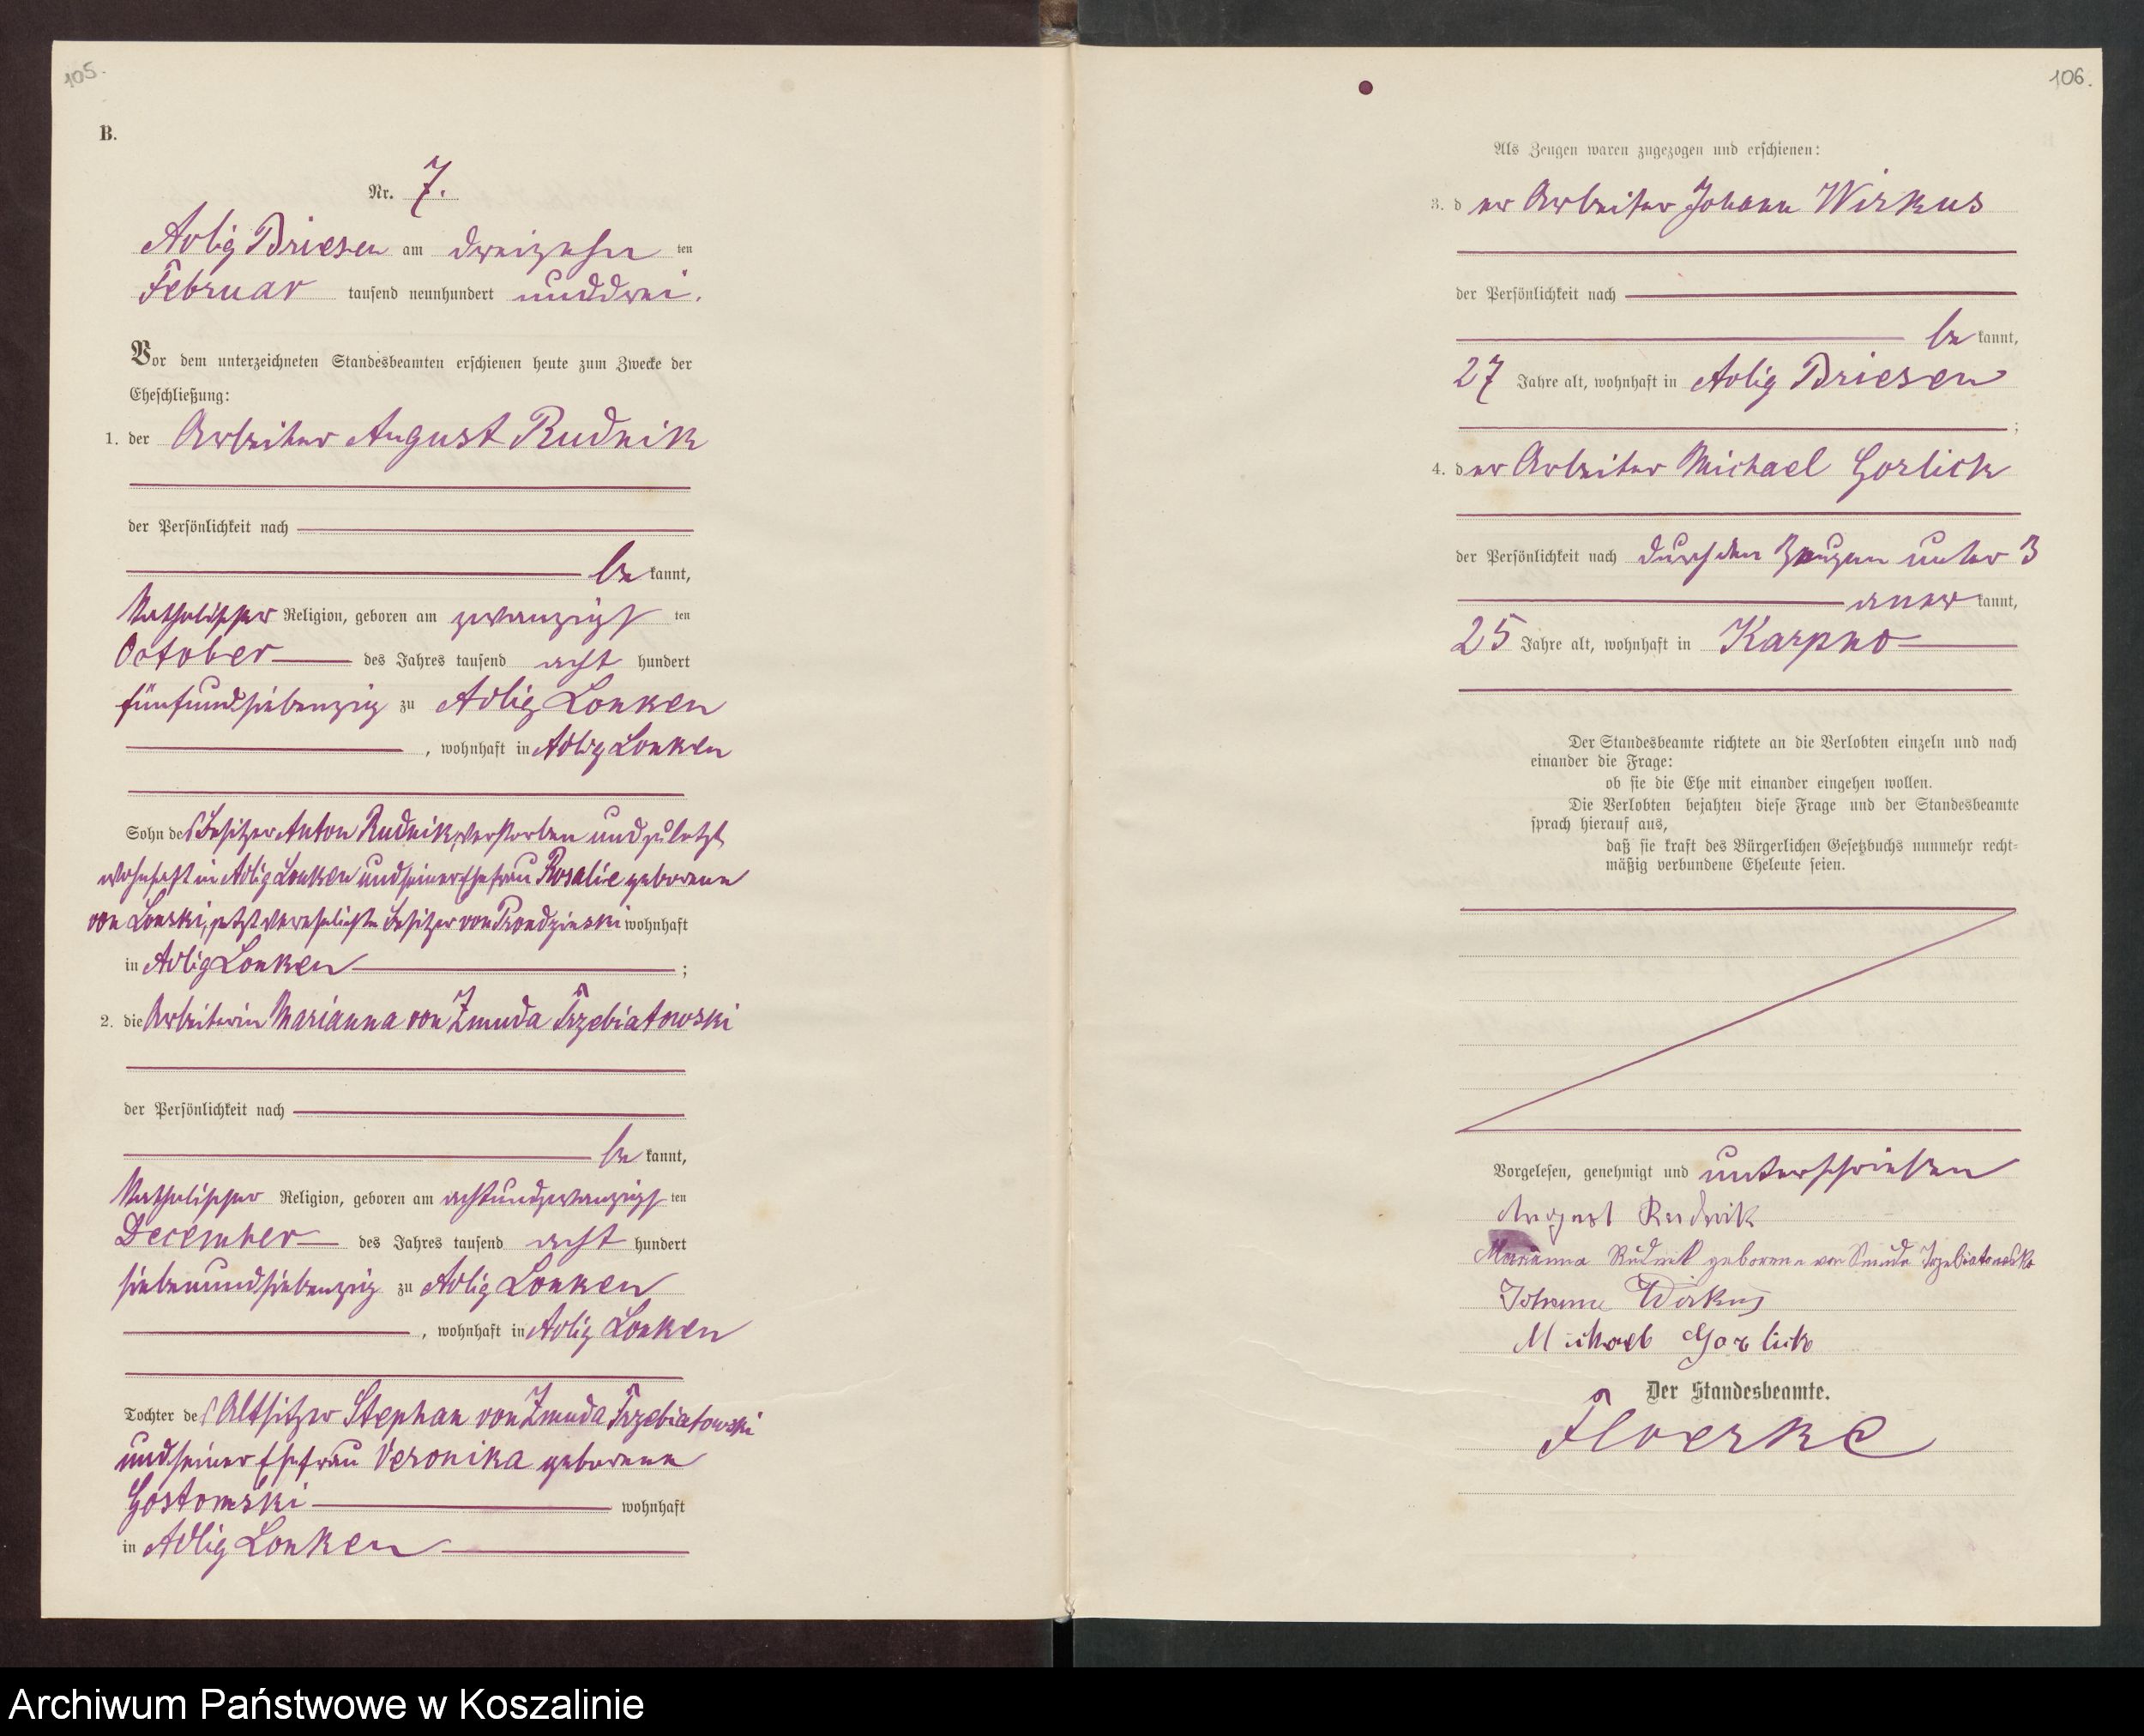 105.
B.
Nr. 7.
Adlig Briesen am dreizehn ten
Februar tausend neunhundert und drei.
Vor dem unterzeichneten Standesbeamten erschienen heute zum Zwecke der
Eheschließung:
1. der Arbeiter August Rudnik
der Persönlichkeit nach
be kannt,
katholischer Religion, geboren am zwanzigs ten
October des Jahres tausend acht hundert
fünfundsiebenzig zu Adlig Lonken
, wohnhaft in Adlig Lonken
Sohn des Besitzer Anton Rudnik, verstorben und zuletzt
wohnhaft in Adlig Lonken und seiner Ehefrau Rosalie geborene
von Lonski, jetzt verehelichte Besitzer von Prondzinski wohnhaft
in Adlig Lonken ;
2. die Arbeiterin Marianna von Zmuda Trzebiatowski
der Persönlichkeit nach
be kannt,
katholischer Religion, geboren am achtundzwanzigs ten
December des Jahres tausend acht hundert
siebenundsiebenzig zu Adlig Lonken
, wohnhaft in Adlig Lonken
Tochter des Altsitzer Stephan von Zmuda Trzebiatowski
und seiner Ehefrau Veronika geborene
Gostomski wohnhaft
in Adlig Lonken
106.
Als Zeugen waren zugezogen und erschienen:
3. der Arbeiter Johann Wirkus
der Persönlichkeit nach
be kannt,
27 Jahre alt, wohnhaft in Adlig Briesen
;
4. der Arbeiter Michael Gorlick
der Persönlichkeit nach durch den Zeugen unter 3
aner kannt,
25 Jahre alt, wohnhaft in Karpno
Der Standesbeamte richtete an die Verlobten einzeln und nach
einander die Frage:
ob sie die Ehe mit einander eingehen wollen.
Die Verlobten bejahten diese Frage und der Standesbeamte
sprach hierauf aus,
daß sie kraft des Bürgerlichen Gesetzbuchs nunmehr recht-
mäßig verbundene Eheleute seien.
Vorgelesen, genehmigt und unterschrieben
August Rudnik
Marianna Rudnik geborene von Smuda Trzebiatowski
Johann Wirkus
Michael Gorlick
Der Standesbeamte.
Floerke
Archiwum Państwowe w Koszalinie